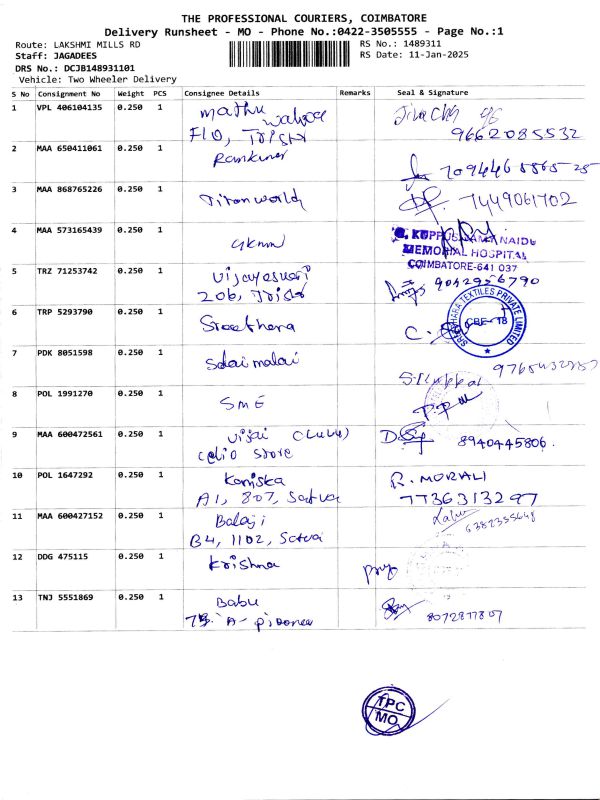 THE PROFESSIONAL COURIERS, COIMBATORE
Delivery Runsheet - MO - Phone No.:0422-3505555 - Page No.:1
Route: LAKSHMI MILLS RD
RS No.: 1489311
Staff: JAGADEES
RS Date: 11-Jan-2025
DRS No.: DCJB148931101
Vehicle: Two Wheeler Delivery
S No Consignment No Weight PCS Consignee Details Remarks Seal & Signature
1 VPL 406104135 0.250 1 mathu
F10, 9662085532
2 MAA 650411061 0.250 1 Ramkumar
3 MAA 868765226 0.250 1 Titanworld 7449061702
4 MAA 573165439 0.250 1 gknm
MEMORIAL HOSPITAL
COIMBATORE-641 037
5 TRZ 71253742 0.250 1 Vijayeswari
206,
6 TRP 5293790 0.250 1 Sreethara
CBE-18
7 PDK 8051598 0.250 1 Solaimalai
8 POL 1991270 0.250 1 SME
9 MAA 600472561 0.250 1 Vijai (Lulu)
celio store 8940445806.
10 POL 1647292 0.250 1 Kaniska R. MORALI
A1, 807, Satva 7736313297
11 MAA 600427152 0.250 1 Balaji
B4, 1102, Satva
12 DDG 475115 0.250 1 Krishna
13 TNJ 5551869 0.250 1 Babu
A- 8072877807
TPC
MO